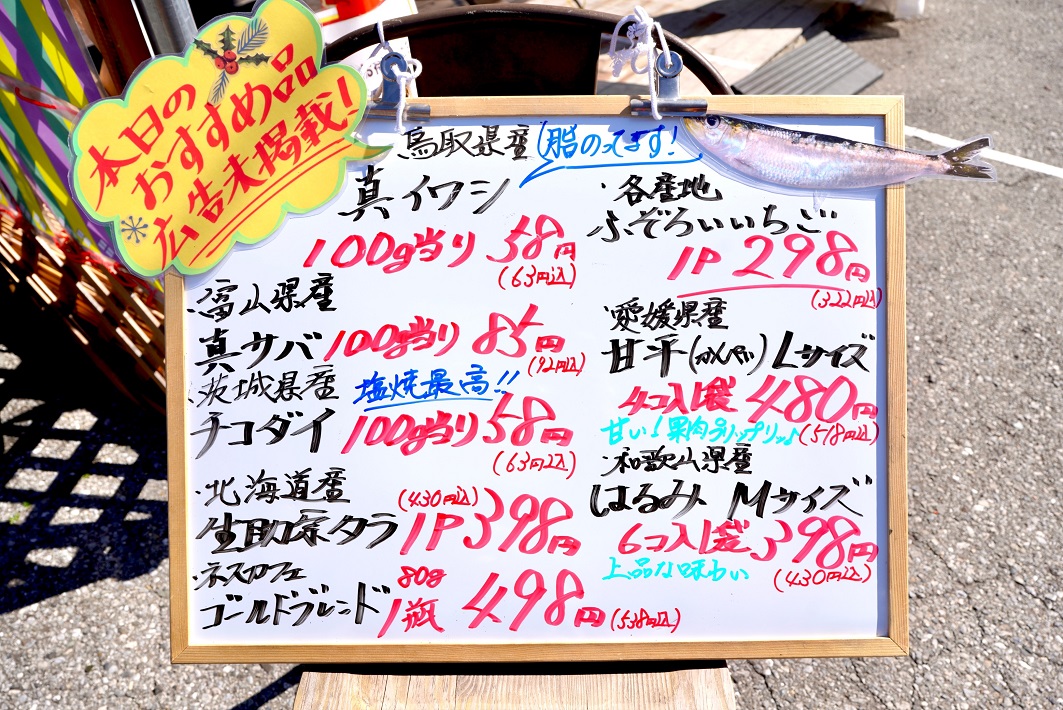 本日の
おすすめ品
広告未掲載!
鳥取県産
脂のってます!
真イワシ
100g当り 58円
(63円込)
・富山県産
真サバ 100g当り 85円
(92円込)
・茨城県産 塩焼最高!!
チコダイ 100g当り 58円
(63円込)
・北海道産 (430円込)
生助宗タラ 1P 398円
・ネスカフェ 80g
ゴールドブレンド 1瓶 498円 (538円込)
・各産地
ふぞろいいちご
1P 298円
(322円込)
・愛媛県産
甘平(かんぺい) Lサイズ
4コ入1袋 480円
甘い!果肉プリップリッ♪ (518円込)
・和歌山県産
はるみ Mサイズ
6コ入1袋 398円
上品な味わい (430円込)